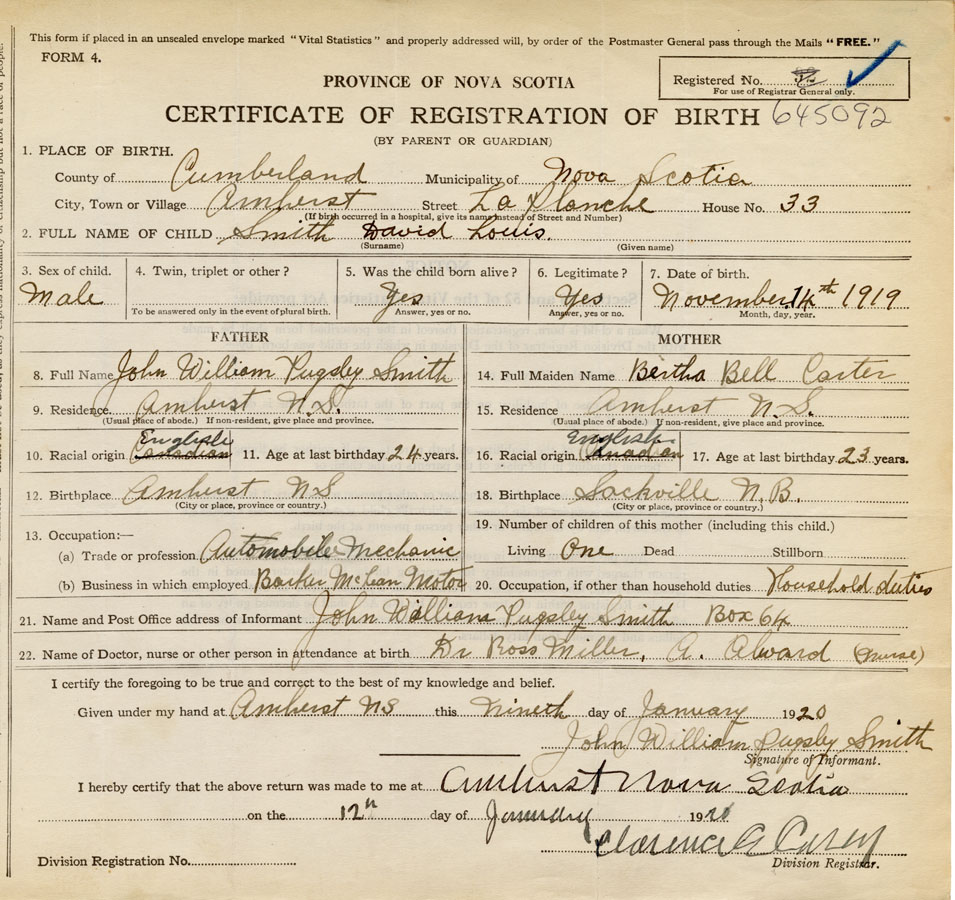 This form if placed in an unsealed envelope marked "Vital Statistics" and properly addressed will, by order of the Postmaster General pass through the Mails "FREE."
FORM 4.
PROVINCE OF NOVA SCOTIA
Registered No.
For use of Registrar General only.
CERTIFICATE OF REGISTRATION OF BIRTH 645092
(BY PARENT OR GUARDIAN)
1. PLACE OF BIRTH.
County of Cumberland Municipality of Nova Scotia
City, Town or Village Amherst Street La Planche House No. 33
(If birth occurred in a hospital, give its name instead of Street and Number)
2. FULL NAME OF CHILD Smith David Louis.
(Surname) (Given name)
3. Sex of child. 4. Twin, triplet or other? 5. Was the child born alive? 6. Legitimate? 7. Date of birth.
Male Yes Yes November 14th 1919
To be answered only in the event of plural birth. Answer, yes or no. Answer, yes or no. Month, day, year.
FATHER MOTHER
8. Full Name John William Pugsley Smith 14. Full Maiden Name Bertha Bell Carter
9. Residence Amherst N.S. 15. Residence Amherst N.S.
(Usual place of abode.) If non-resident, give place and province. (Usual place of abode.) If non-resident, give place and province.
English English
10. Racial origin Canadian 11. Age at last birthday 24 years. 16. Racial origin Canadian 17. Age at last birthday 23 years.
12. Birthplace Amherst NS 18. Birthplace Sackville N.B.
(City or place, province or country.) (City or place, province or country.)
13. Occupation:— 19. Number of children of this mother (including this child.)
(a) Trade or profession Automobile Mechanic Living One Dead Stillborn
(b) Business in which employed Barker McLean Motor 20. Occupation, if other than household duties Household duties
21. Name and Post Office address of Informant John William Pugsley Smith Box 64
22. Name of Doctor, nurse or other person in attendance at birth Dr Ross Miller, A. Alward (nurse)
I certify the foregoing to be true and correct to the best of my knowledge and belief.
Given under my hand at Amherst NS this Nineth day of January 1920
John William Pugsley Smith
Signature of Informant.
I hereby certify that the above return was made to me at Amherst Nova Scotia
on the 12th day of January 1920
Clarence
Division Registration No. Division Registrar.